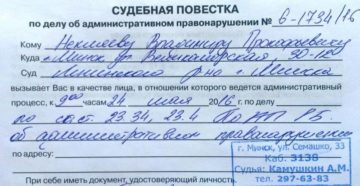 СУДЕБНАЯ ПОВЕСТКА
по делу об административном правонарушении № 6-1734/16
Кому Некляеву Владимиру Прокофьевичу
Куда г. Минск ул.
Суд Ленинского р-на г. Минска
вызывает Вас в качестве лица, в отношении которого ведется административный
процесс, к 9 00 часам 24 мая 2016 г.
по ст. ст. 23.34, 23.4 КоАП РБ
об административном правонарушении
по адресу:
г. Минск, ул. Семашко, 33
Каб. 313Б
Судья: Камушкин А.М.
тел. 297-63-83
При себе иметь документ, удостоверяющий личность.